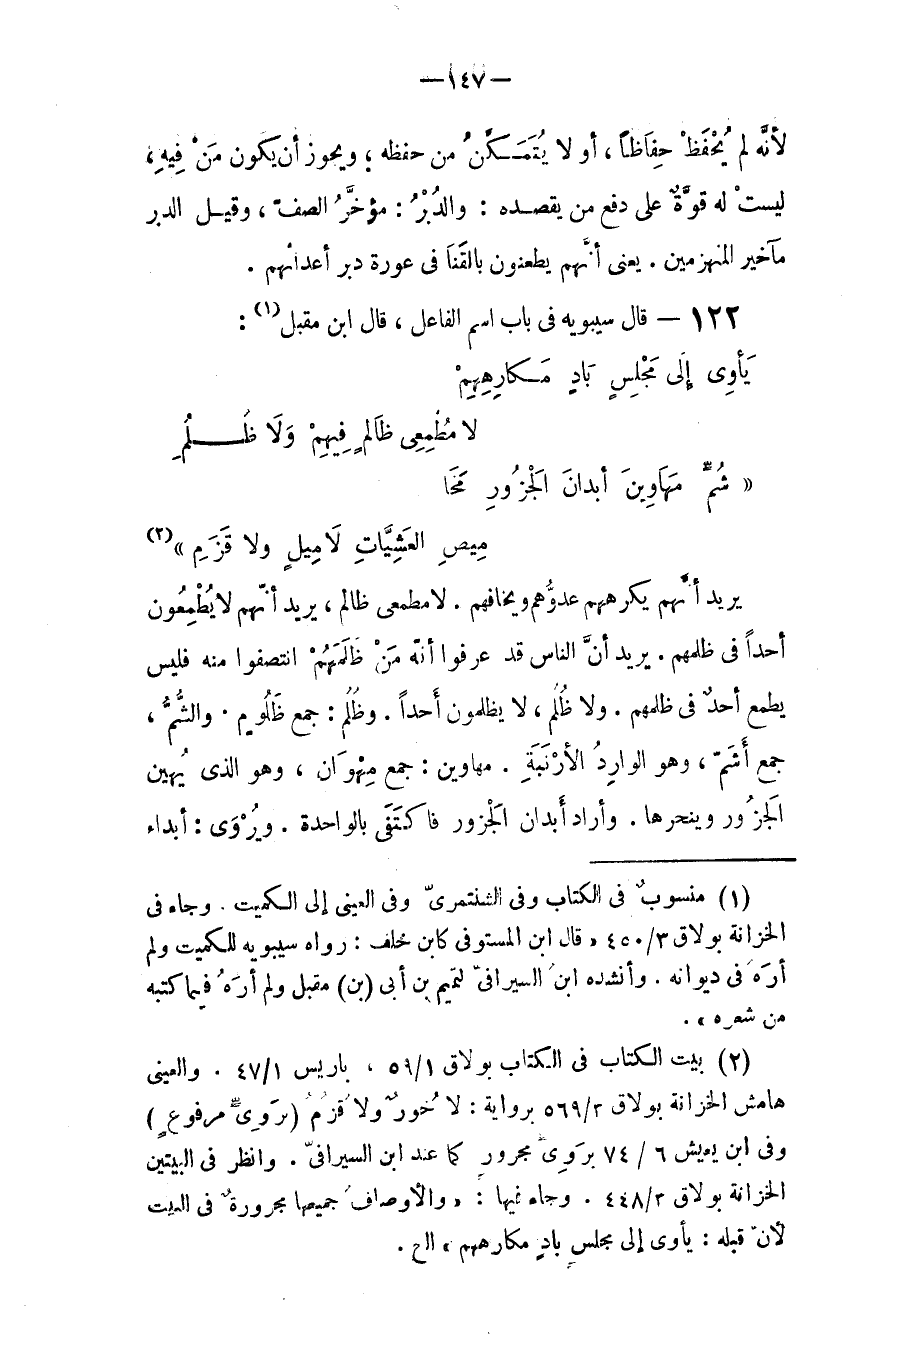 —١٤٧—
لأنَّه لم يُحْفَظْ حِفَاظاً ، أو لا يُتَمَكَّنُ من حفظه ؛ ويجوز أن يكون مَنْ فِيهِ ،
ليستْ له قوَّةٌ على دفع من يقصده : والدُبْرُ : مؤخَّرُ الصفّ ، وقيل الدبر
مآخير المنهزمين . يعنى أنَّهم يطعنون بالقَنَا فى عورة دبر أعدائهم .
١٢٢ — قال سيبويه فى باب اسم الفاعل ، قال ابن مقبل(١) :
يَأوِى إِلَى مَجْلِسٍ بَادٍ مَكارِهِهِمْ
لا مطْمِعِى ظالمٍ فِيهِمْ وَلَا ظُلُمِ
« شُمٍّ مَهَاوِينَ أبدانَ الجَزُورِ مَخَا
مِيصِ العَشِيَّاتِ لَا مِيلٍ ولا قَزَمِ »(٢)
يريد أنَّهم يكرههم عدوُّهم ويخافهم . لا مطمعى ظالم ، يريد أنّهم لا يُطْمِعُون
أحداً فى ظلمهم . يريد أنَّ الناس قد عرفوا أنّه مَنْ ظَلَمَهُمْ انتصفوا منه فليس
يطمع أحدٌ فى ظلمهم . ولا ظُلُم ، لا يظلمون أحداً . وظُلُم : جمع ظَلُومٍ . والشُّمُّ ،
جمع أَشَمّ ، وهو الوارِدُ الأرْنَبَةِ . مهاوين : جمع مِهْوَان ، وهو الذى يُهين
الجَزُور وينحرها . وأراد أَبدان الجَزور فاكتَفَى بالواحدة . ويُرْوَى : أبداء
(١) منسوبٌ فى الكتاب وفى الشنتمرىّ وفى العينى إلى الكميت . وجاء فى
الخزانة بولاق ٣/٤٥٠ « قال ابن المستوفى كابن خلف : رواه سيبويه للكميت ولم
أرَه فى ديوانه . وأنشده ابنُ السيرافىّ لتميم بن أبى (بن) مقبل ولم أرَهُ فيما كتبه
من شعره » .
(٢) بيت الكتاب فى الكتاب بولاق ٥٩/١ ، باريس ٤٧/١ . والعينى
هامش الخزانة بولاق ٥٦٩/٣ برواية : لا خُورٌ ولا قزمُ (بِرَوِىٍّ مرفوعٍ)
وفى ابن يعيش ٦ / ٧٤ بِرَوِىّ مجرورٍ كما عند ابن السيرافىّ . وانظر فى البيتين
الخزانة بولاق ٤٤٨/٣ . وجاء فيها : « والأوصافُ جميعها مجرورةٌ فى البيت
لأنّ قبله : يأوى إلى مجلسٍ بادٍ مكارههم » الخ .